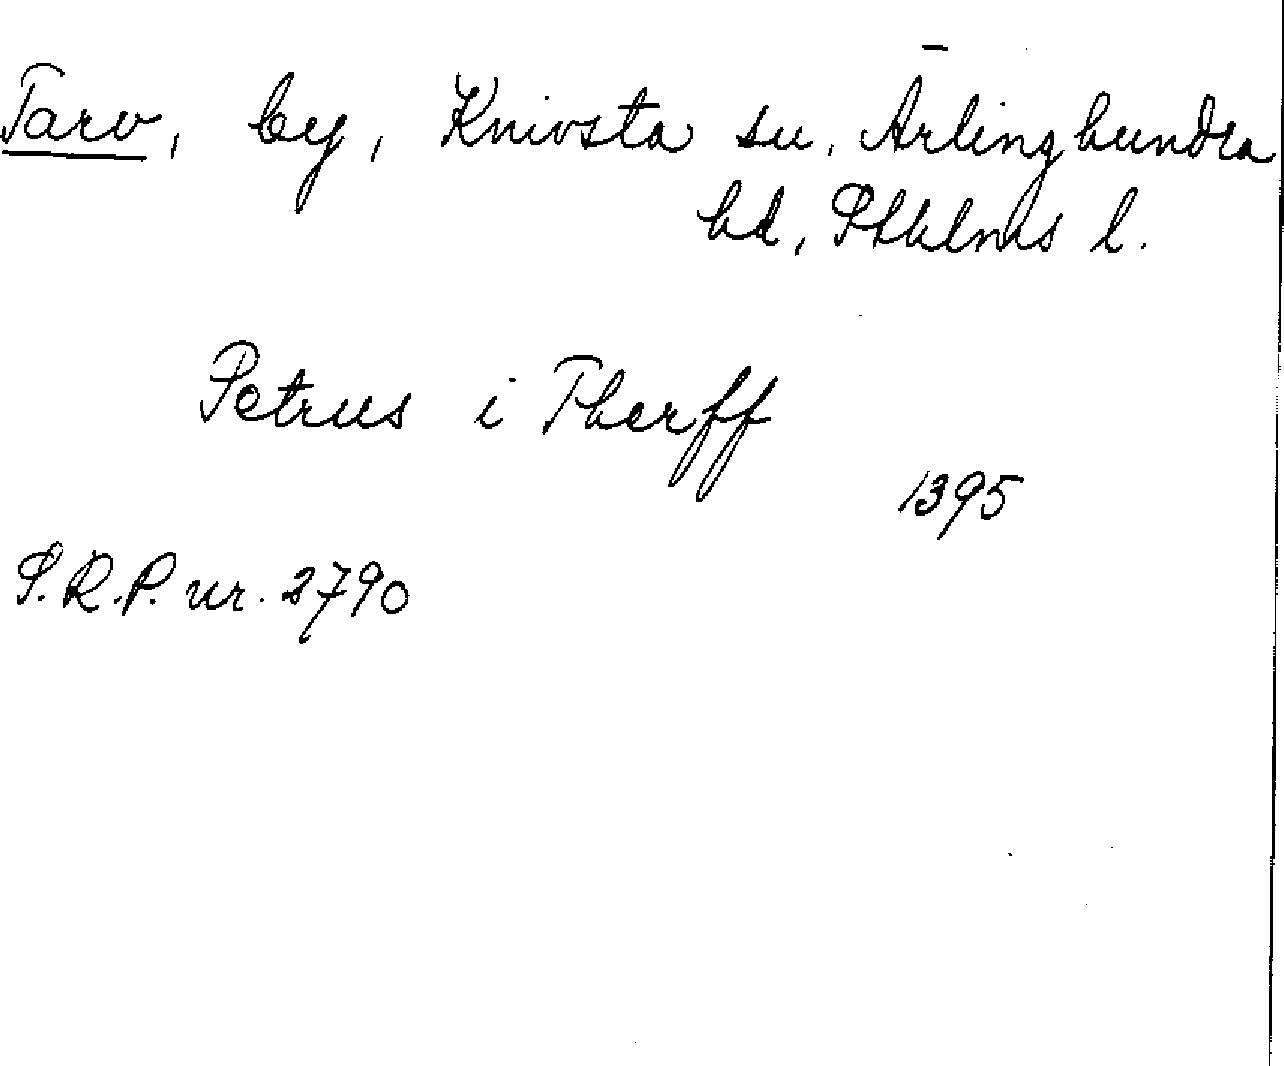 Tarv, by, Knivsta sn, Ärlinghundra
hd, Sthlms l.
Petrus i Therff
1395
S.R.P. nr. 2790